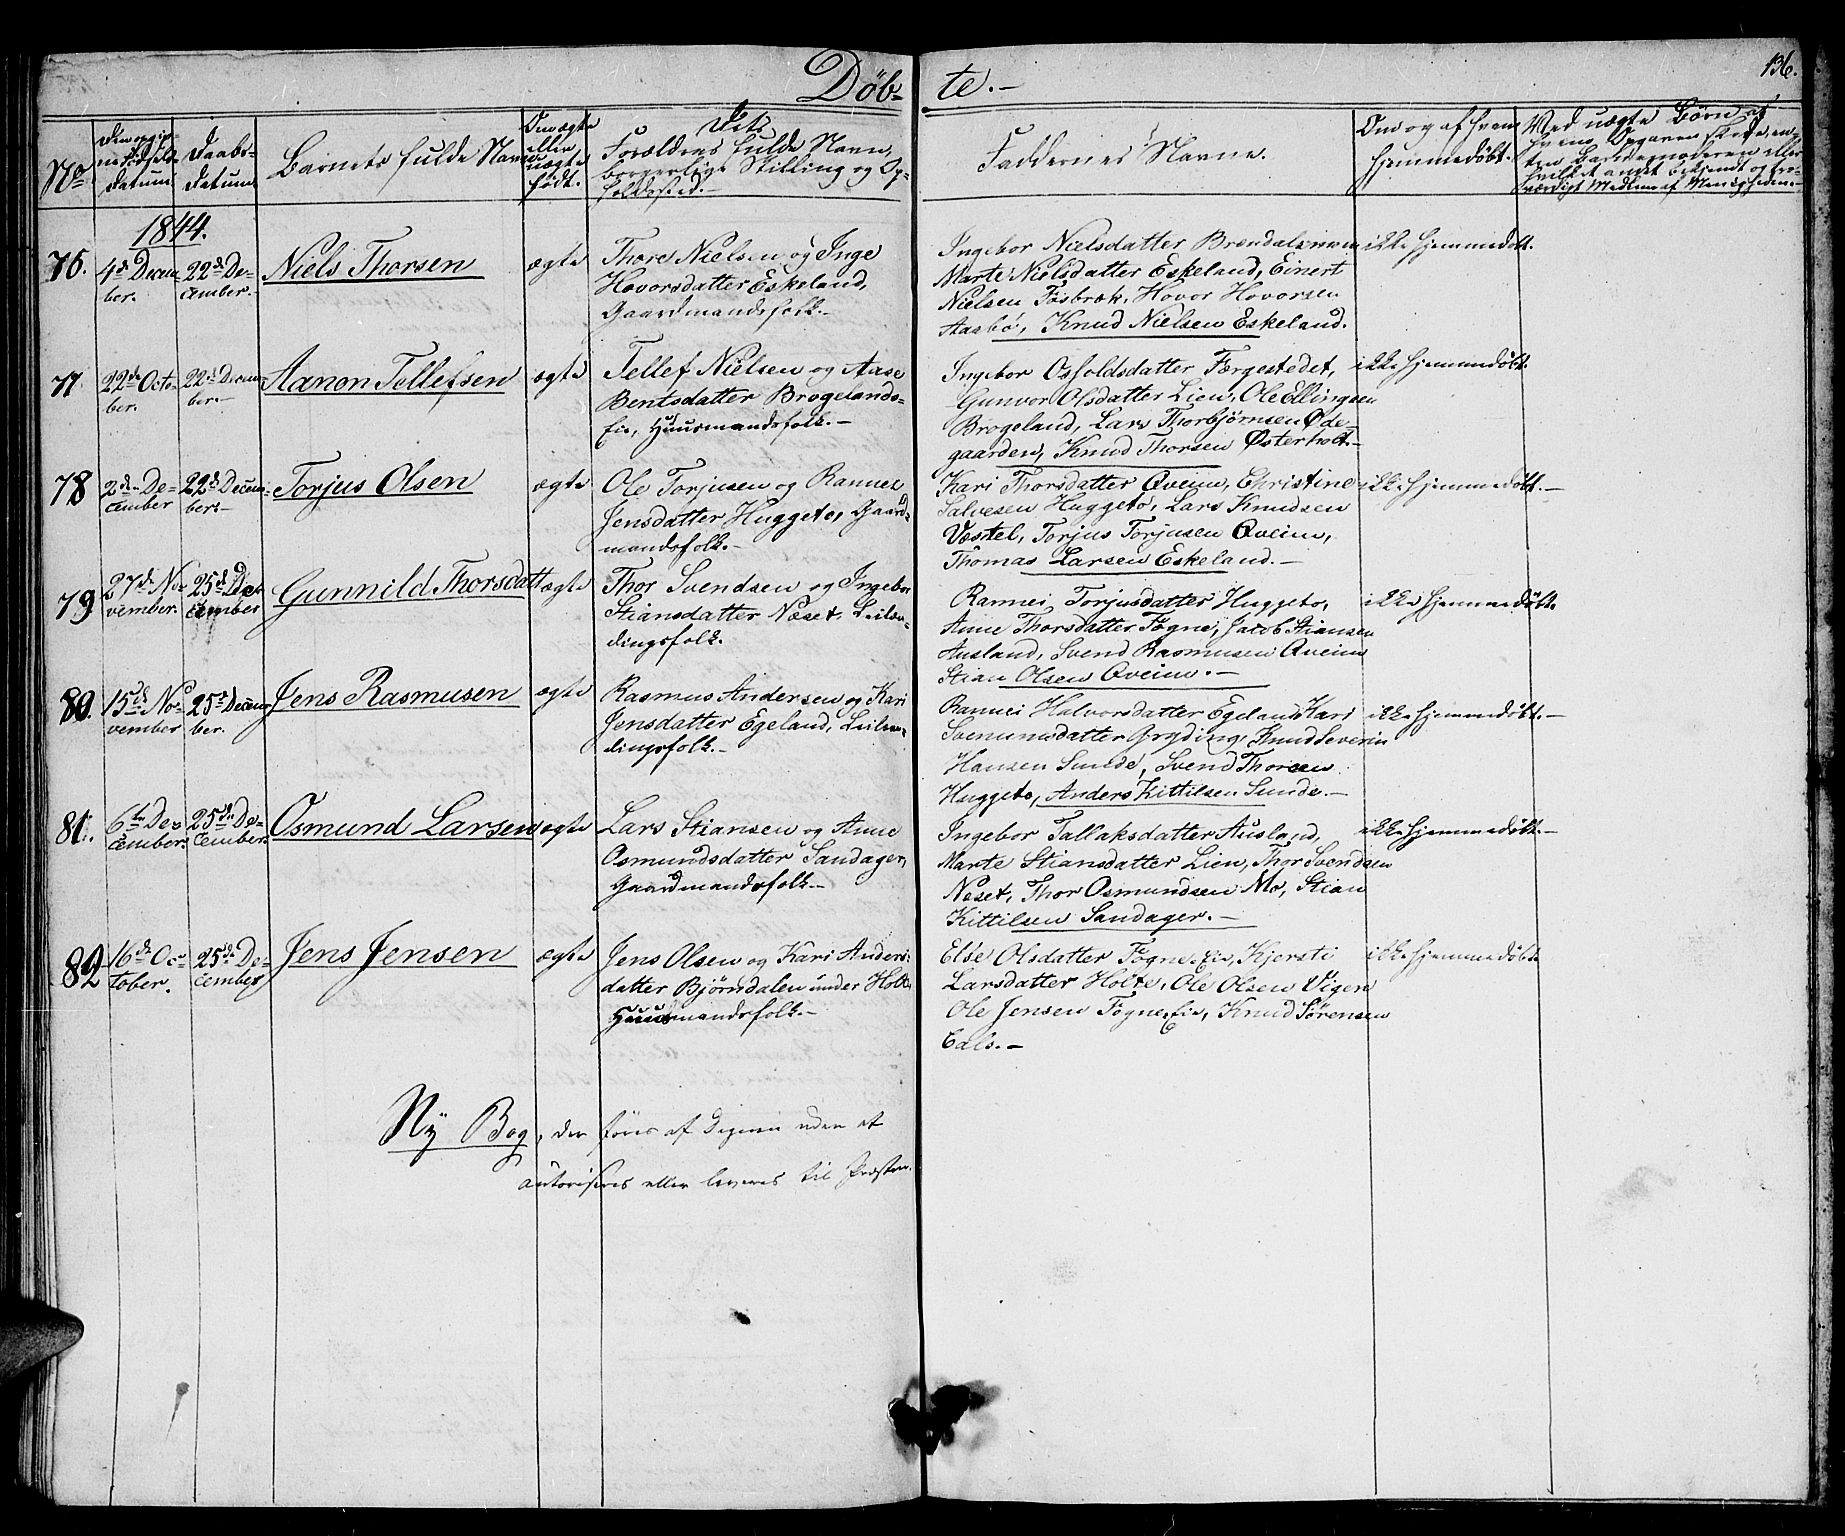 Döb- te.-
136.
No
Den opgiv-
ne Födsels-
datum
Daabs-
datum
Barnets fulde Navn
Om ægte
eller
uægte
födt.
Dets
Forældres fulde Navn,
borgerlige Stilling og Op-
holdssted.-
Faddernes Navne.
Om og af hvem
hjemmedöbt.
Ved uægte Börn af
hvem Opgaven skede, en-
ten Barnemoderen eller
hvilket andet bekjendt og tro-
værdigt Medlem af Menigheden.-
1844.
76.
4de Decem-
ber.
22de De-
cember.-
Niels Thorsen
ægte
Thore Nielsen og Inge
Hovorsdatter Eskeland,
Gaardmandsfolk.-
Ingebor Nielsdatter
Marte Nielsdatter Eskeland, Einert
Nielsen Fösbræk, Hovor Hovorsen
Aasbö, Knud Nielsen Eskeland.
ikke hjemmedöbt.
77
22de Octo-
ber.
22de Decem-
ber.-
Aanon Tellefsen
ægte
Tellef Nielsen og Aase
Bentsdatter Brogelands-
Eie, Huusmandsfolk.-
Ingebor Osfoldsdatter Færgestedet,
Gunvor Olsdatter Lien, Ole Ellingsen
Brogeland, Lars Thorbjörnsen Öde-
gaarden, Knud Thorsen Österholt.-
ikke hjemmedöbt.
78
2den De-
cember
22de Decem-
ber.-
Torjus Olsen
ægte
Ole Torjusen og Rannei
Jensdatter Huggeto, Gaard-
mandsfolk.-
Kari Thorsdatter Qveim, Christine
Salvesen Huggeto, Lars Knudsen
Væstel, Torjus Torjusen Qveim,
Thomas Larsen Eskeland.-
ikke hjemmedöbt.-
79
27de No-
vember.
25de De-
cember
Gunnild Thorsdatt
ægte
Thor Svendsen og Ingebor
Stiansdatter Næset, Leilæn-
dingsfolk.
Rannei Torjusdatter Huggeto,
Anne Thorsdatter Fogne, Jacob Stiansen
Ausland, Svend Rasmusen Qveim
Stian Olsen Qveim.-
ikke hjemmedöbt.
80.
15de No-
vember
25de Decem-
ber.
Jens Rasmusen
ægte
Rasmus Andersen og Kari
Jensdatter Egeland, Leilæn-
dingsfolk.-
Rannei Halvorsdatter Egeland, Kari
Svenumsdatter Gryding, Knud Severin
Hansen Sunde, Svend Thorsen
Huggeto, Anders Kittilsen Sunde.-
ikke hjemmedöbt.-
81.
6te De-
cember.
25de De-
cember.
Osmund Larsen
ægte
Lars Stiansen og Anne
Osmundsdatter Sandager,
Gaardmandsfolk.-
Ingebor Tallaksdatter Ausland,
Marte Stiansdatter Lien, Thor Svendsen
Næset, Thor Osmundsen Mo, Stian
Kittilsen Sandager.-
ikke hjemmedöbt.-
82
16de Oc-
tober.
25de De-
cember
Jens Jensen
ægte
Jens Olsen og Kari Anders-
datter Björndalen under Holte
Huusmandsfolk.-
Else Olsdatter Fogne-Eie, Kjersti
Larsdatter Holte, Ole Olsen Vigen
Ole Jensen Fogne-Eie, Knud Sörensen
Cals.-
ikke hjemmedöbt
Ny Bog, der föres af Degnen uden at
autoriseres eller leveres til Præsten.